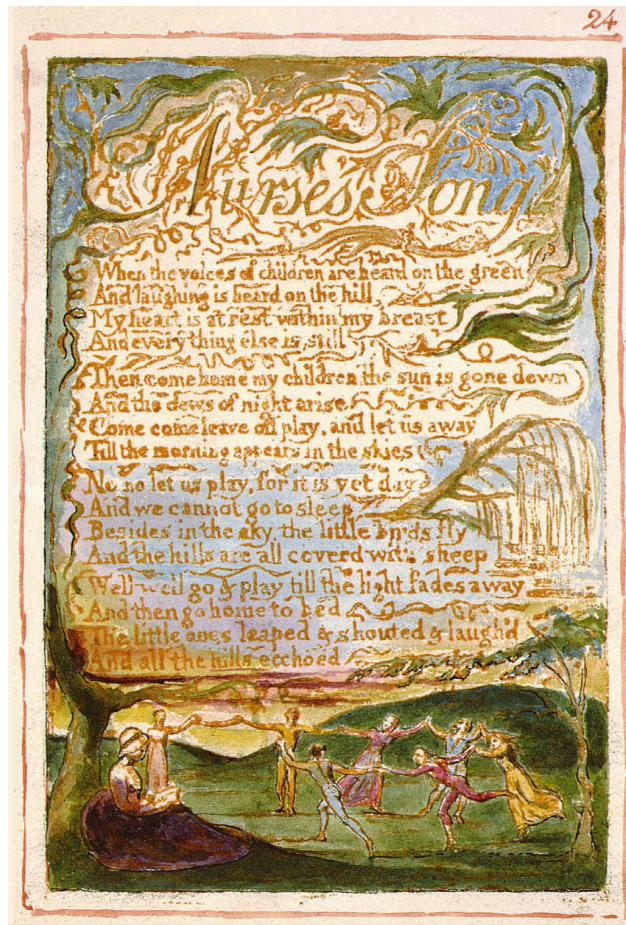 24
Nurses Song
When the voices of children are heard on the green
And laughing is heard on the hill,
My heart is at rest within my breast
And every thing else is still
Then come home my children, the sun is gone down
And the dews of night arise
Come come leave off play, and let us away
Till the morning appears in the skies
No no let us play, for it is yet day
And we cannot go to sleep
Besides in the sky, the little birds fly
And the hills are all coverd with sheep
Well well go & play till the light fades away
And then go home to bed
The little ones leaped & shouted & laugh'd
And all the hills ecchoed